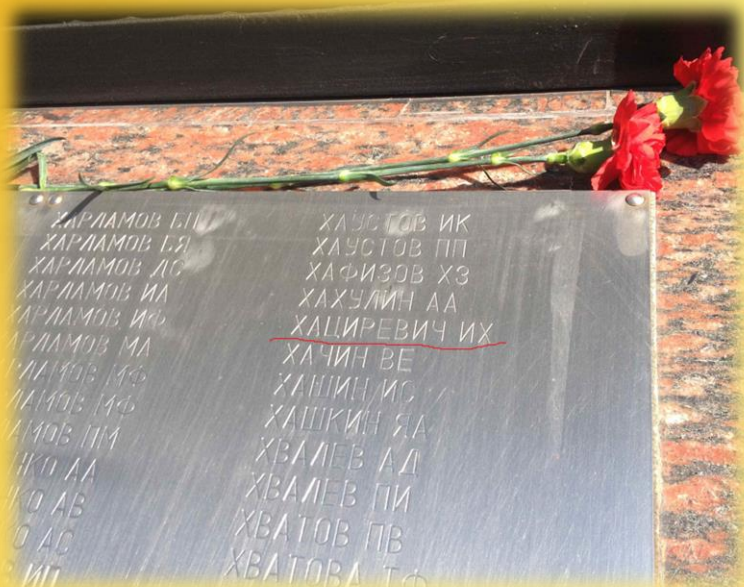 ХАРЛАМОВ БП
ХАРЛАМОВ БЯ
ХАРЛАМОВ ДС
ХАРЛАМОВ ИА
ХАРЛАМОВ ИФ
АРЛАМОВ МА
РЛАМОВ МФ
ЛАМОВ МФ
АМОВ ПМ
НКО АА
КО АВ
О АС
ИП
ХАУСТОВ ИК
ХАУСТОВ ПП
ХАФИЗОВ ХЗ
ХАХУЛИН АА
ХАЦИРЕВИЧ ИХ
ХАЧИН ВЕ
ХАШИН ИС
ХАШКИН ЯА
ХВАЛЕВ АД
ХВАЛЕВ ПИ
ХВАТОВ ПВ
ХВАТОВА ТФ